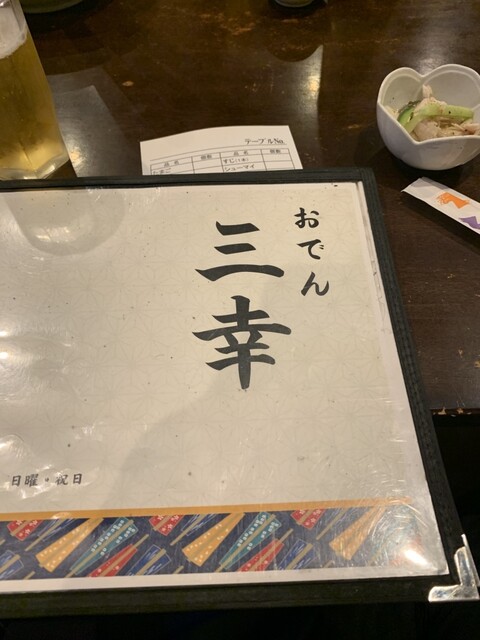 テーブルNo.
品名 個数 品名 個数
たまご すじ(1本)
シューマイ
おでん
三幸
日曜・祝日